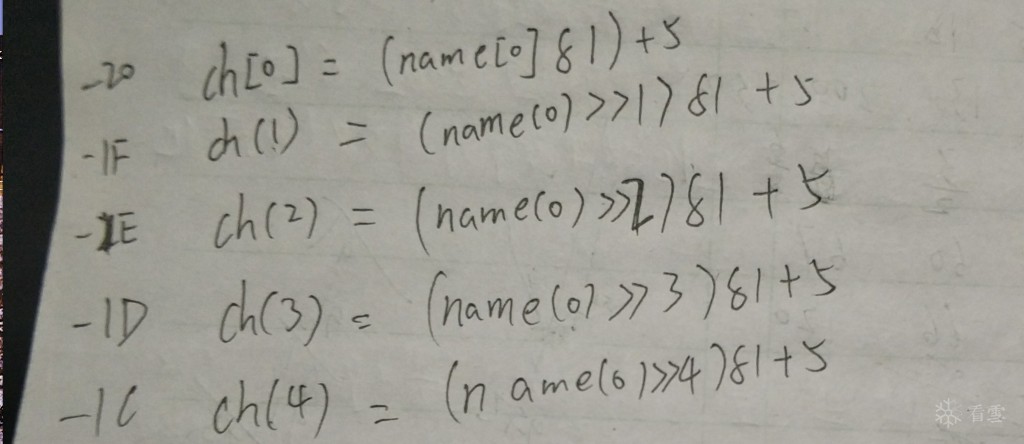 -20 ch[0] = (name[0] & 1) + 5
-1F ch(1) = (name(0) >> 1) & 1 + 5
-1E ch(2) = (name(0) >> 2) & 1 + 5
-1D ch(3) = (name(0) >> 3) & 1 + 5
-1C ch(4) = (name(0) >> 4) & 1 + 5
看雪